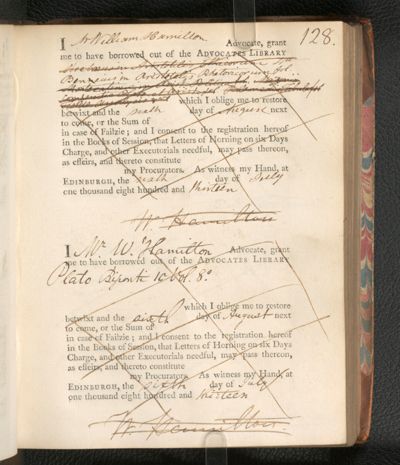 128.
I Sr William Hamilton Advocate, grant
me to have borrowed out of the ADVOCATES LIBRARY
in Aristotelis Rhetoricorum
which I oblige me to restore
betwixt and the sixth day of August next
to come, or the Sum of
in case of Failzie; and I consent to the registration hereof
in the Books of Session, that Letters of Horning on six Days
Charge, and other Executorials needful, may pass thereon,
as effeirs, and thereto constitute
my Procurators. As witness my Hand, at
EDINBURGH, the sixth day of July
one thousand eight hundred and thirteen
W. Hamilton
I Mr. W. Hamilton Advocate, grant
me to have borrowed out of the ADVOCATES LIBRARY
Plato Bipont: 10 Vol. 8o
which I oblige me to restore
betwixt and the sixth day of August next
to come, or the Sum of
in case of Failzie; and I consent to the registration hereof
in the Books of Session, that Letters of Horning on six Days
Charge, and other Executorials needful, may pass thereon,
as effeirs, and thereto constitute
my Procurators. As witness my Hand, at
EDINBURGH, the sixth day of July
one thousand eight hundred and thirteen
W. Hamilton